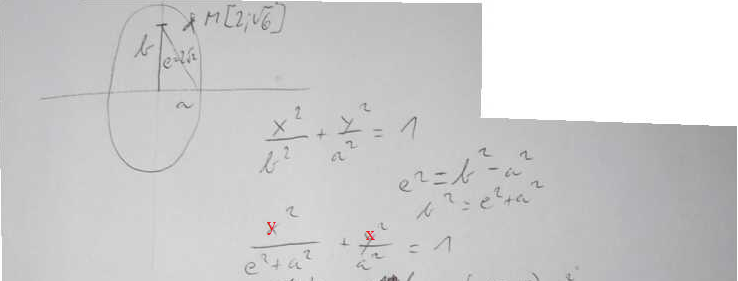 M[2;√6]
b
e=2√2
a
x²/b² + y²/a² = 1
e² = b² - a²
b² = e² + a²
y²/(e²+a²) + x²/a² = 1